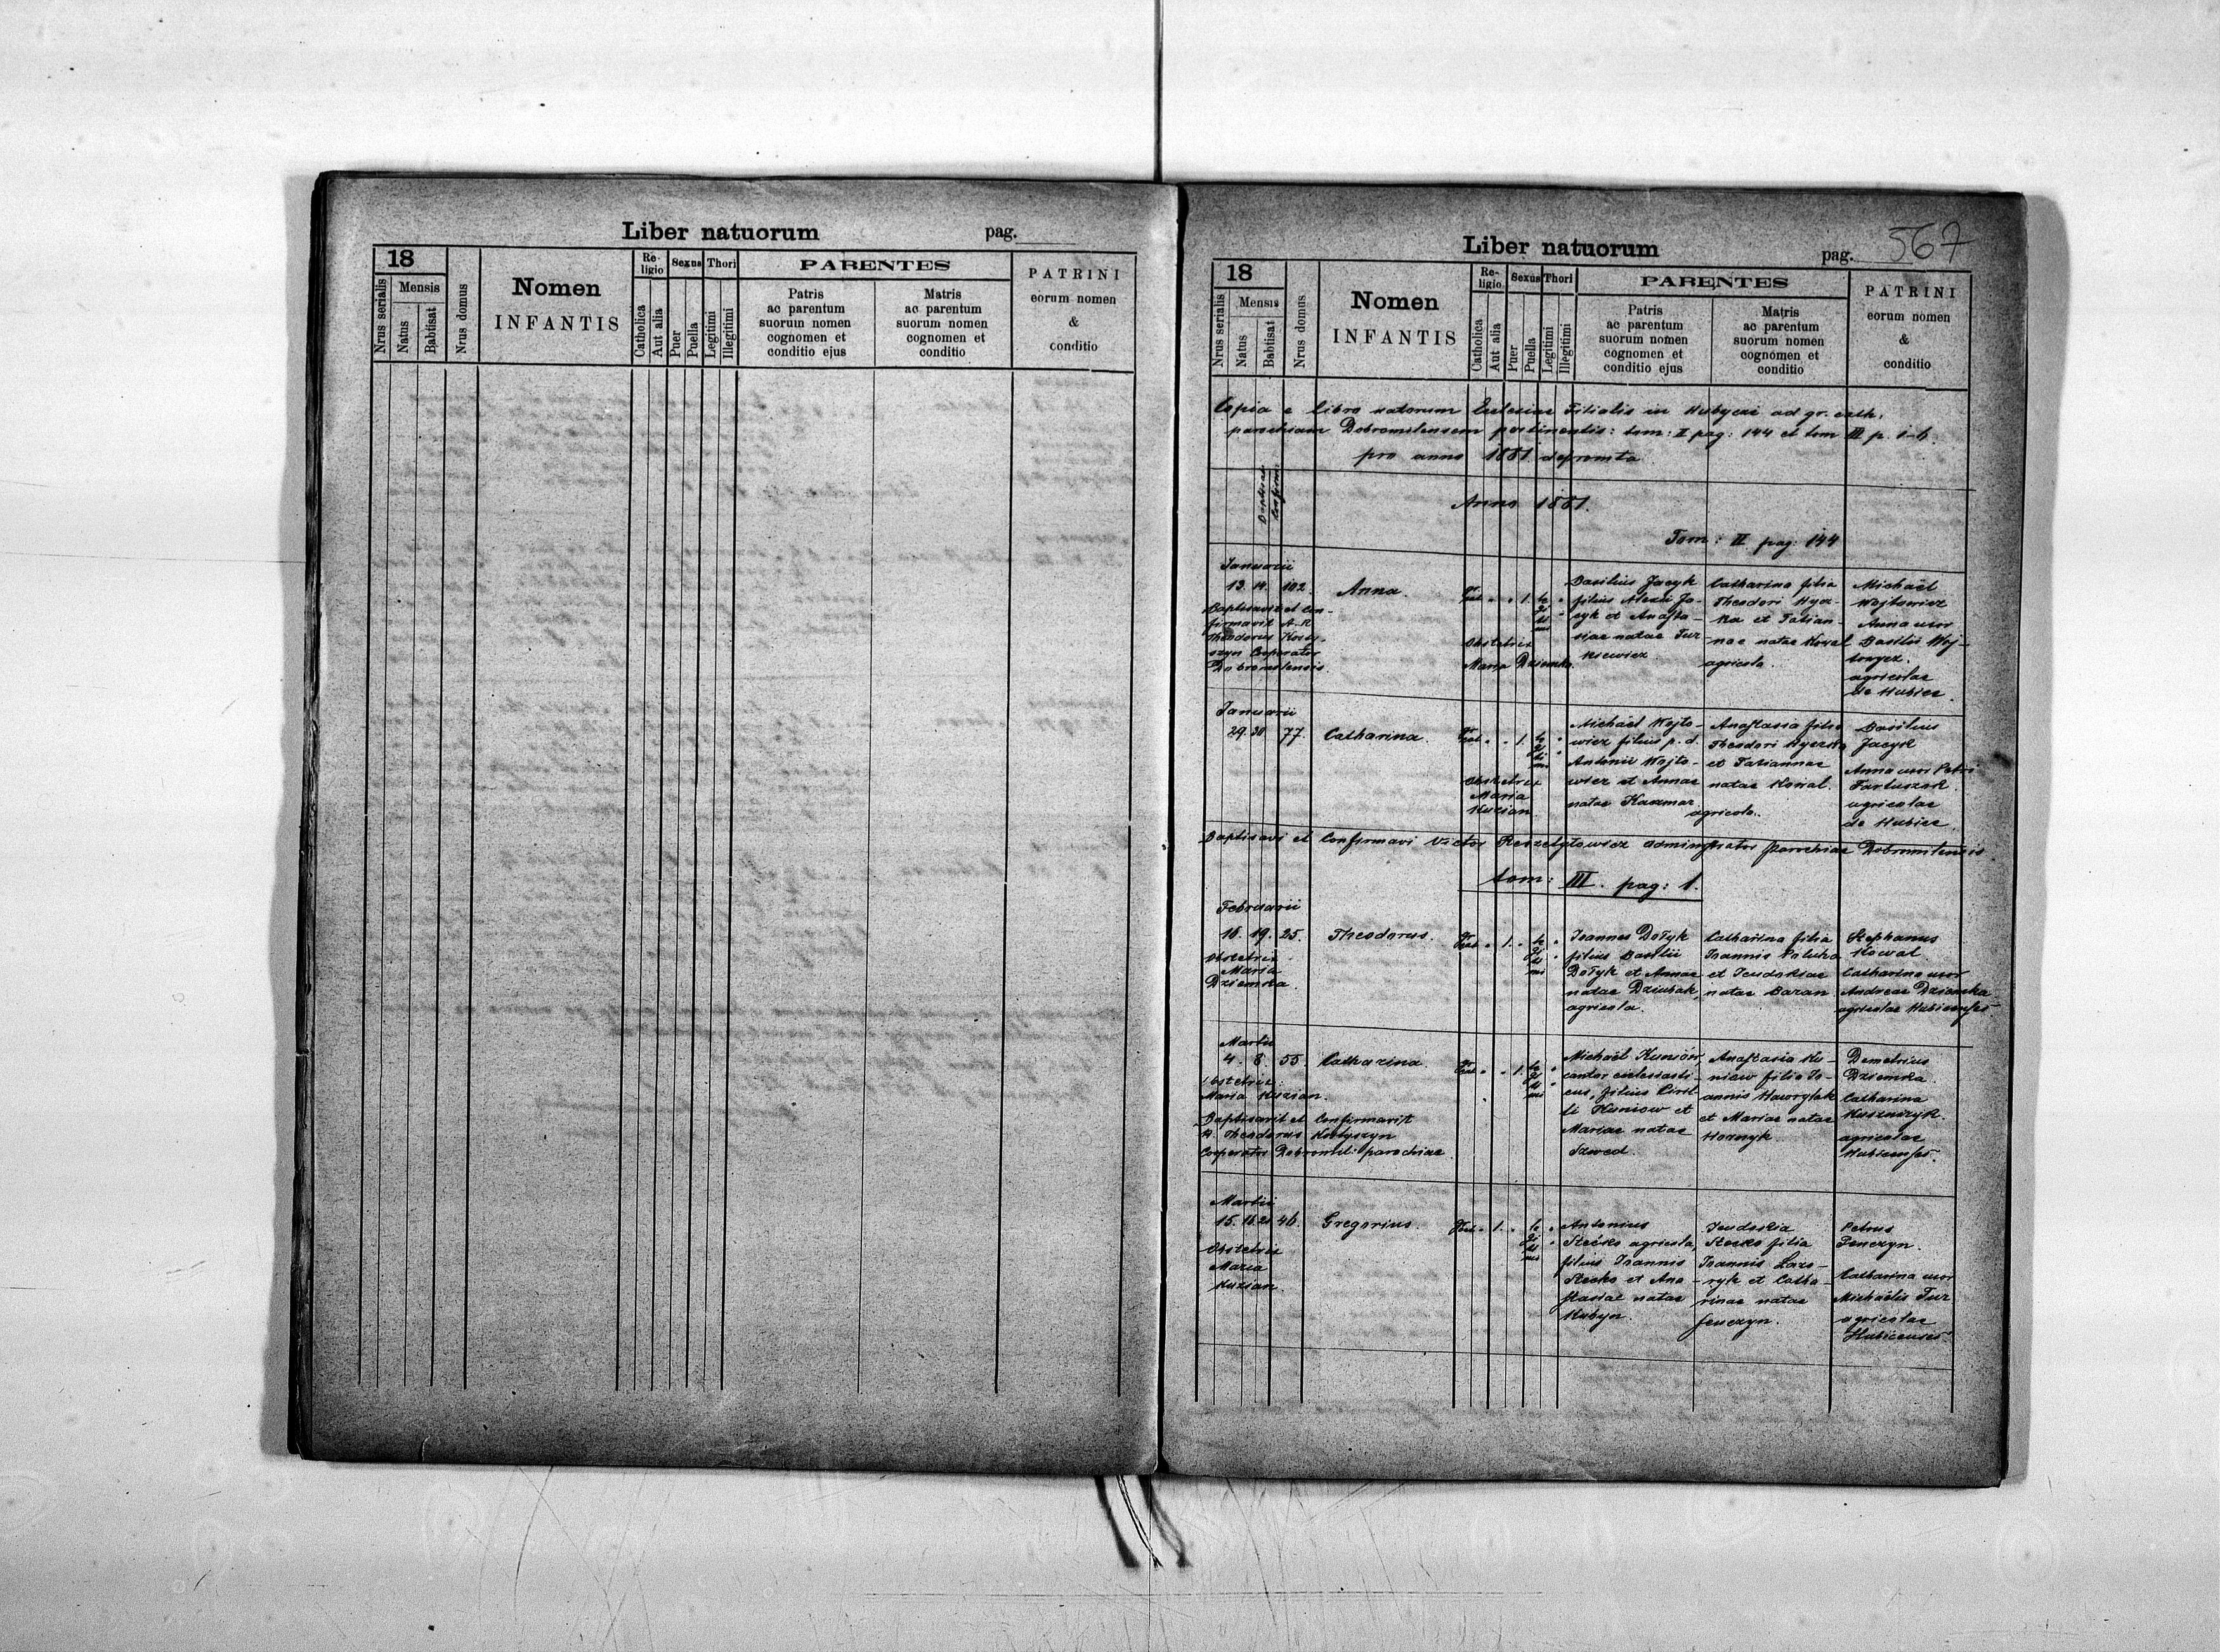 Liber natuorum pag.
18
Nrus serialis
Mensis
Natus
Babtisat
Nrus domus
Nomen
INFANTIS
Re-
ligio
Catholica
Aut alia
Sexus
Puer
Puella
Thori
Legitimi
Illegitimi
PARENTES
Patris
ac parentum
suorum nomen
cognomen et
conditio ejus
Matris
ac parentum
suorum nomen
cognomen et
conditio
PATRINI
eorum nomen
&
conditio
Liber natuorum pag. 567
18
Nrus serialis
Mensis
Natus
Babtisat
Nrus domus
Nomen
INFANTIS
Re-
ligio
Catholica
Aut alia
Sexus
Puer
Puella
Thori
Legitimi
Illegitimi
PARENTES
Patris
ac parentum
suorum nomen
cognomen et
conditio ejus
Matris
ac parentum
suorum nomen
cognomen et
conditio
PATRINI
eorum nomen
&
conditio
Copia e libro natorum Ecclesiae Filialis in Hubycze ad gr. cath.
parochiam Dobromilensem pertinentis: tom: II pag: 144 et tom III p. 1-6.
pro anno 1881 depromta
Anno 1881.
Tom: II pag: 144
Januarii
13. 14. 102. Anna.
Baptisavit et Con-
firmavit A. R.
Theodorus Kosty-
szyn Cooperator
Dobromilensis.
Obstetrix
Maria Dziemka.
Basilius Jacyk
filius Alexii Ja-
cyk et Anasta-
siae natae Tur
kiewicz
Catharina filia
Theodori Hycz-
ka et Tatian-
nae natae Kowal
agricola.
Michaël
Wojtowicz
Anna uxor
Basilii Woj-
towycz.
agricolae
de Hubice.
Januarii
29. 30 77. Catharina.
Obstetrix
Maria
Kuzian
Michaël Wojto-
wicz filius p. d.
Antonii Wojto-
wicz et Annae
natae Kaczmar
agricola.
Anastasia filia
Theodori Hyczka
et Tatiannae
natae Kowal.
Basilius
Jacyk
Anna uxor Petri
Fartuszok
agricolae
de Hubice.
Baptisavi et Confirmavi Victor Reszetyłowicz administrator parochiae Dobromilensis.
tom: III. pag: 1.
Februarii
18. 19. 25. Theodorus.
Obstetrix
Maria
Dziemka.
Joannes Dotyk
filius Basilii
Dotyk et Annae
natae Dziubak,
agricola.
Catharina filia
Joannis Paluha
et Jeudokiae
natae Baran
Stephanus
Kowal
Catharina uxor
Andreae Dziemka
agricolae Hubicenses
Martii
4. 8. 55. Catharina.
Obstetrix:
Maria Kuzian.
Baptisavit et Confirmavit
R. Theodorus Kostyszyn
Cooperator Dobromil: parochiae.
Michaël Kuniów,
cantor ecclesiasti-
cus, filius Ciril-
li Kuniow et
Mariae natae
Szwed.
Anastasia Ku-
niow filia Jo-
annis Hawrylak
et Mariae natae
Demetrius
Dziemka
Catharina
agricolae
Hubicenses.
Martii
15. 16. 21 46. Gregorius.
Obstetrix
Maria
Kuzian
Antonius
Stećko agricola,
filius Joannis
Stecko et Ana-
stasiae natae
Hubyn.
Jeudokia
Stecko filia
Joannis Laza-
ryk et Catha-
rinae natae
Senczyn.
Petrus
Senczyn.
Catharina uxor
Michaëlis Tur
agricolae
Hubicenses.